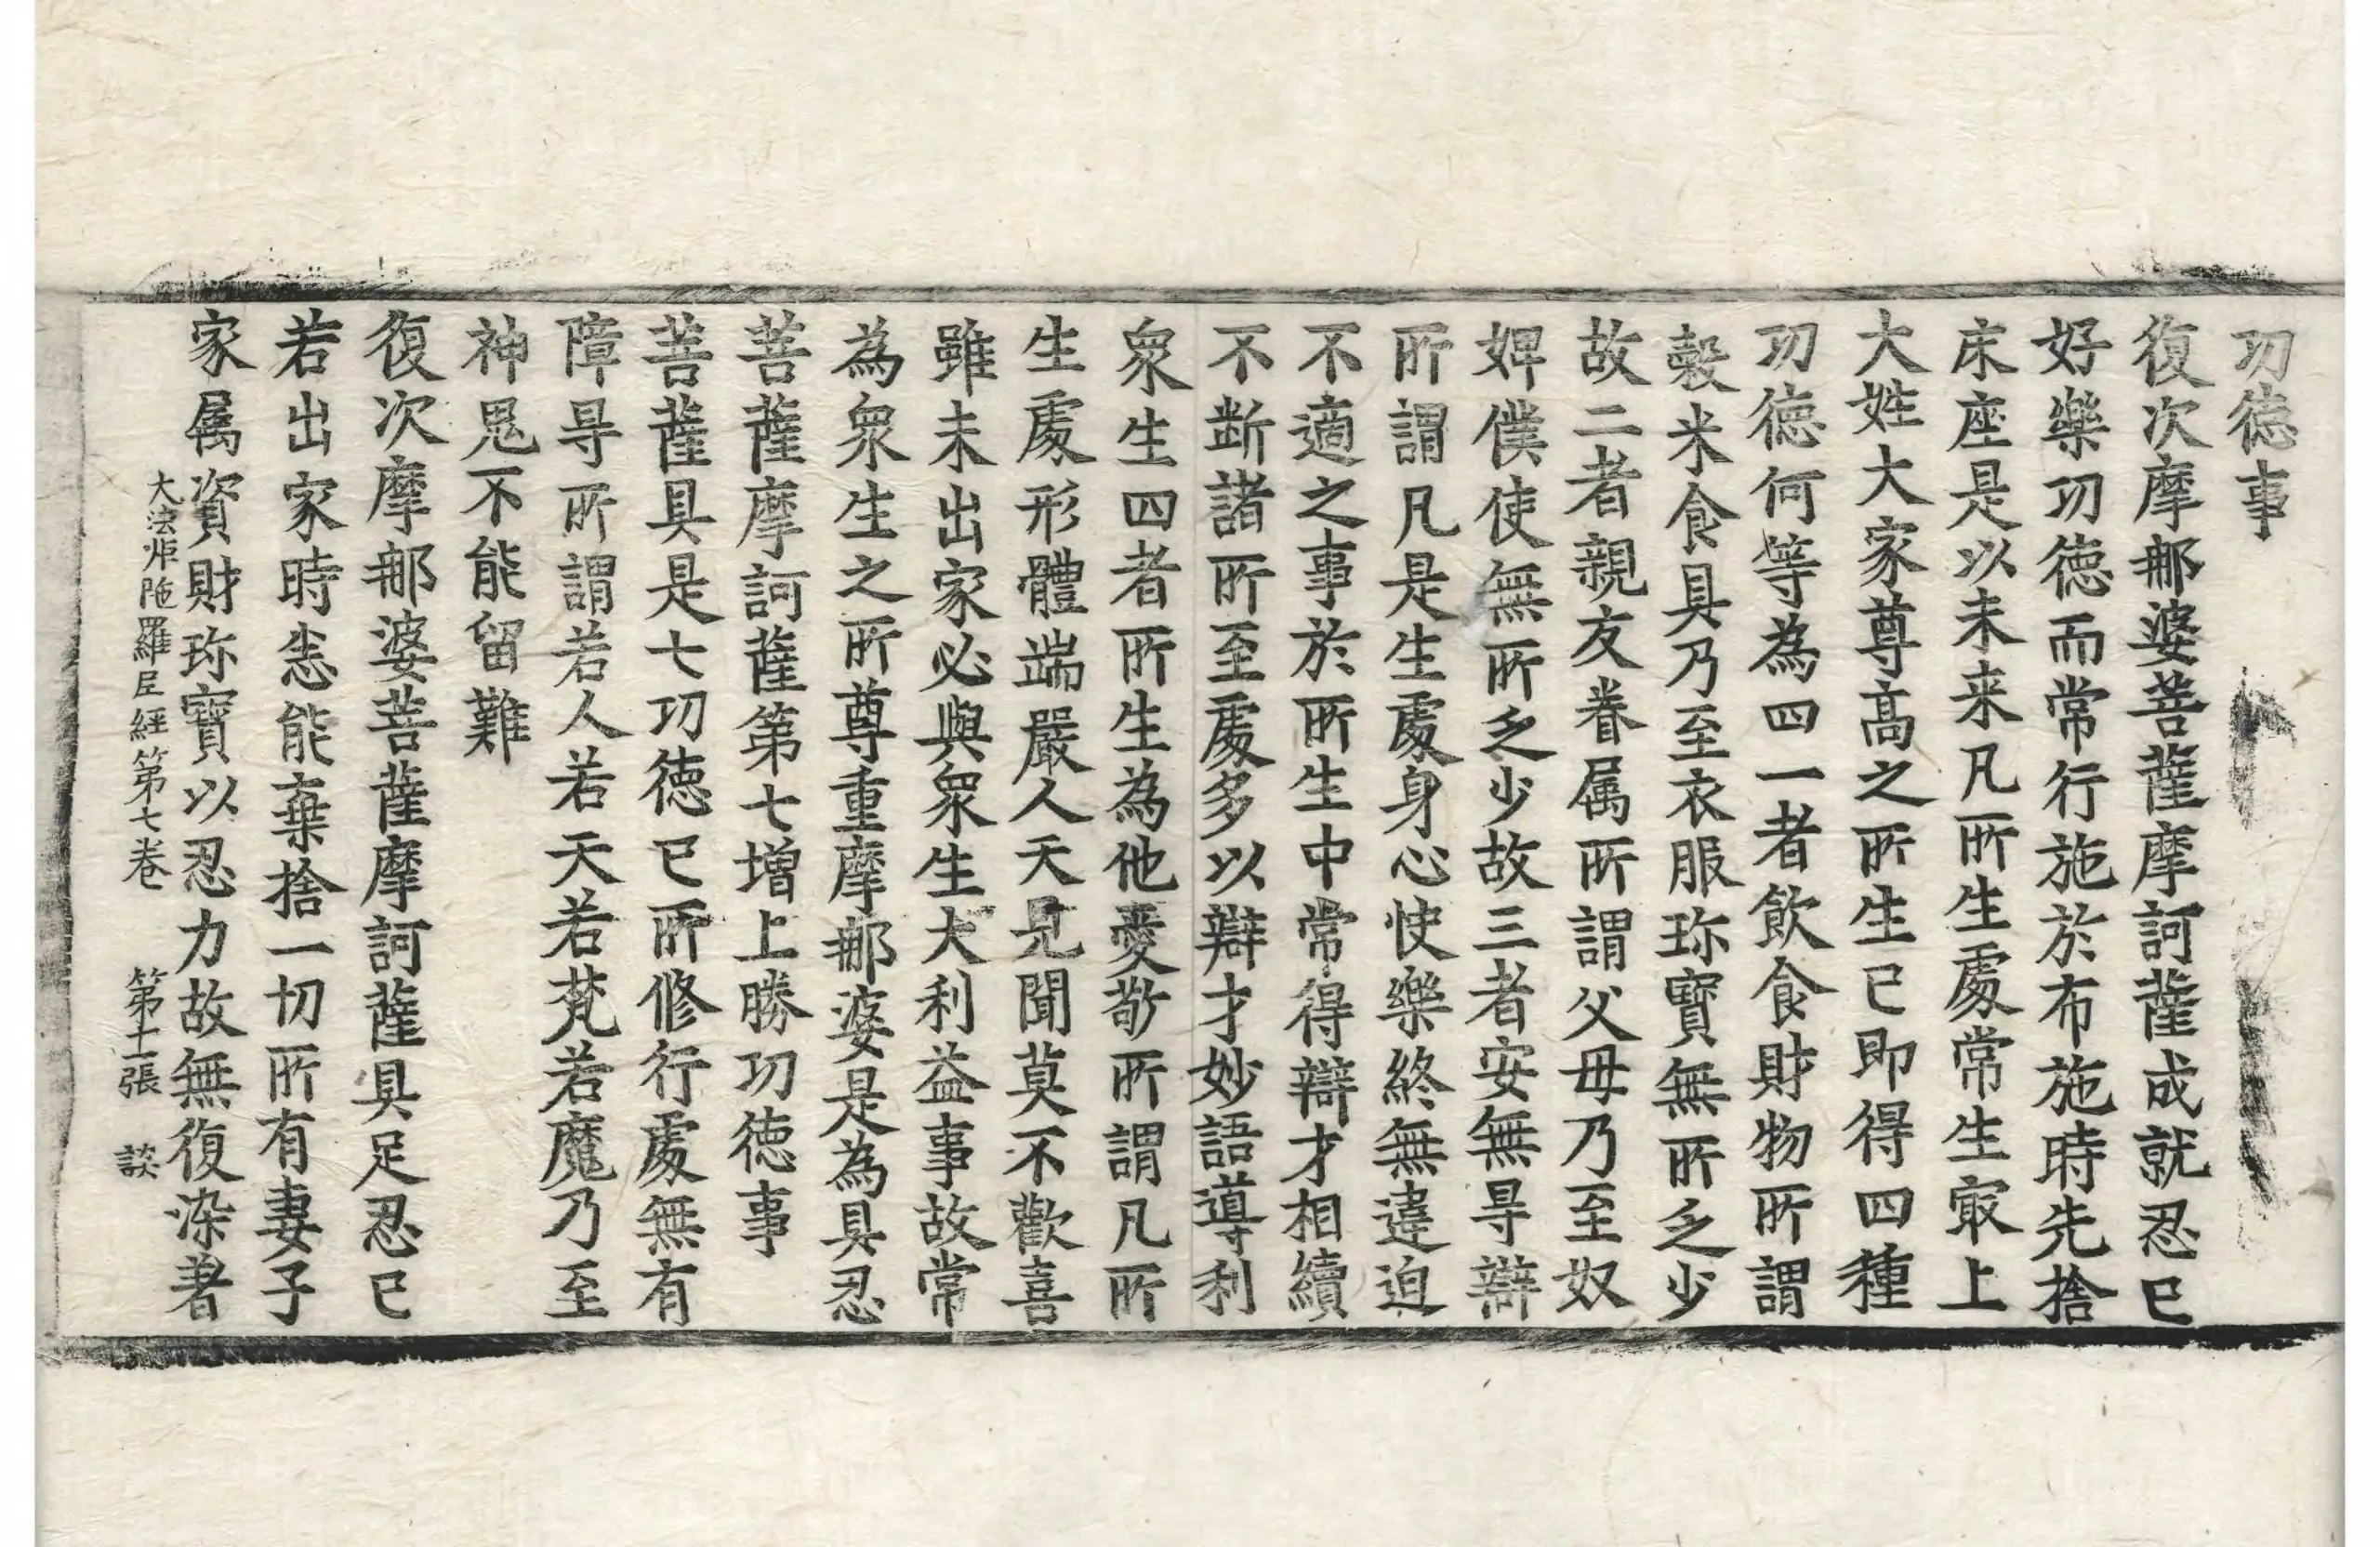 功徳事
復次摩那婆菩薩摩訶薩成就忍已
好樂功徳而常行施於布施時先捨
床座是以未来凡所生處常生㝡上
大姓大家尊髙之所生已即得四種
功徳何等為四一者飲食財物所謂
穀米食具乃至衣服珎寶無所乏少
故二者親友眷属所謂父毋乃至奴
婢僕使無所乏少故三者安無㝵辯
所謂凡是生處身心快樂終無違迫
不適之事於所生中常得辯才相續
不断諸所至處多以辯才妙語導利
衆生四者所生為他愛敬所謂凡所
生處形體端嚴人天見聞莫不歡喜
雖未出家必與衆生大利益事故常
為衆生之所尊重摩那婆是為具忍
菩薩摩訶薩第七增上勝功徳事
菩薩具是七功徳已所修行處無有
障㝵所謂若人若天若梵若魔乃至
神鬼不能留難
復次摩那婆菩薩摩訶薩具足忍已
若出家時恙能棄捨一切所有妻子
家属資財珎寶以忍力故無復染著
大法炬陁羅尼經第七卷 第十二張 談